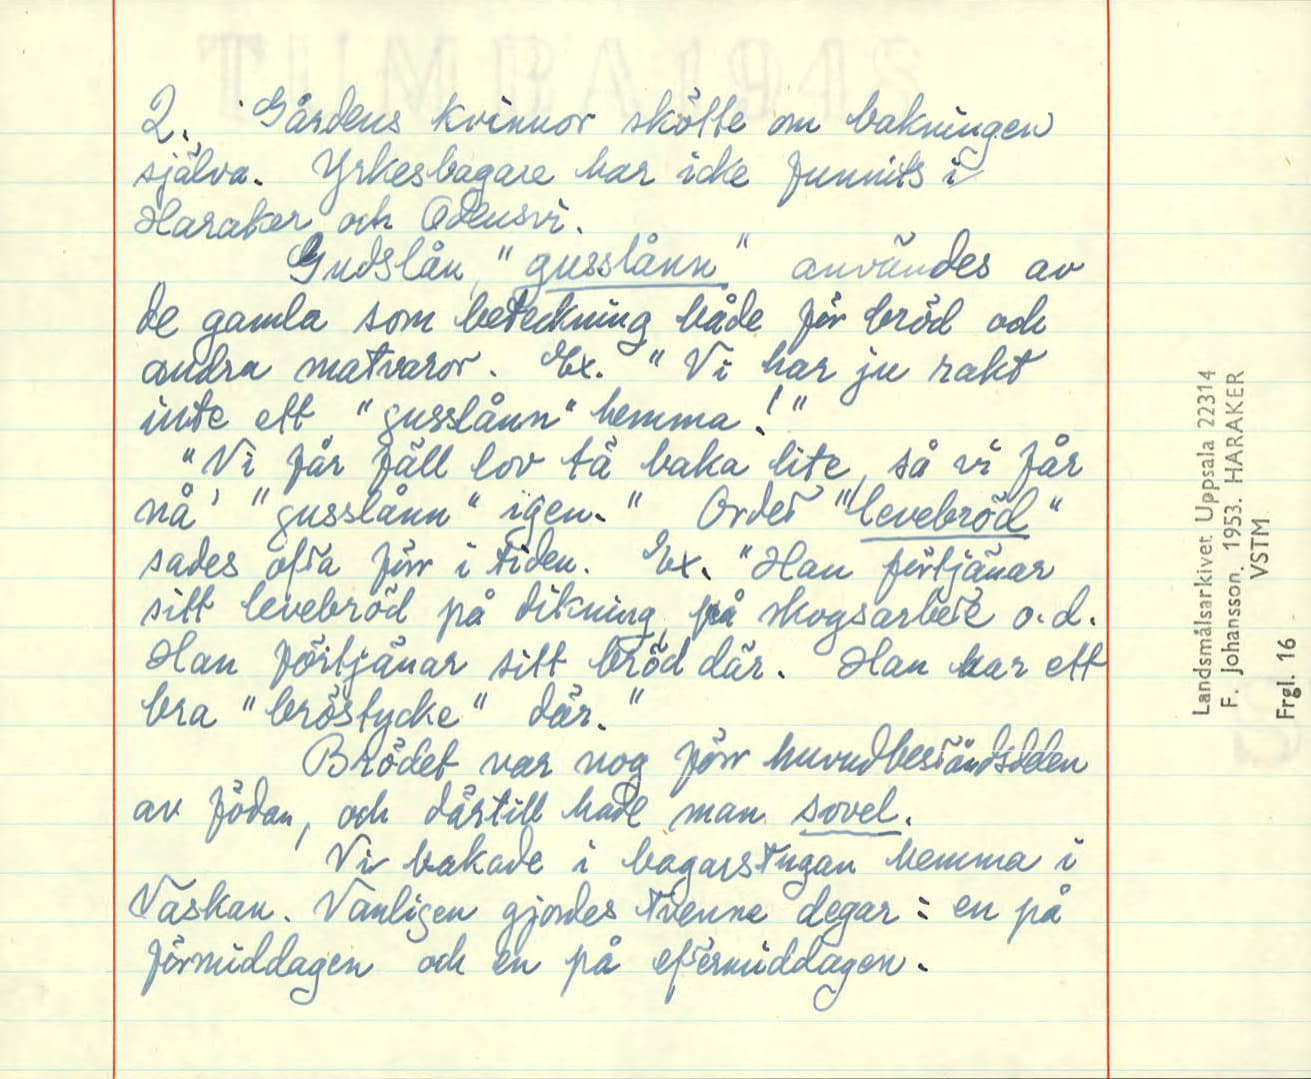 2. Gårdens kvinnor skötte om bakningen
själva. Yrkesbagare har icke funnits i
Haraker och Odensvi.
Gudslån, "gusslånn" användes av
de gamla som beteckning både för bröd och
andra matvaror. Ex. "Vi har ju rakt
inte ett "gusslånn" hemma!"
"Vi får fäll lov tä baka lite, så vi får
nå' "gusslånn" igen." Ordet "levebröd"
sades ofta förr i tiden. Ex. "Han förtjänar
sitt levebröd på dikning, på skogsarbete o.d.
Han förtjänar sitt bröd där. Han har ett
bra "bröstycke" där."
Brödet var nog förr huvudbeståndsdelen
av födan, och därtill hade man sovel.
Vi bakade i bagarstugan hemma i
Väskan. Vanligen gjordes tvenne degar: en på
förmiddagen och en på eftermiddagen.
Landsmålsarkivet Uppsala 22314
F. Johansson. 1953. HARAKER
VSTM
Frgl. 16
TUMBA 1948